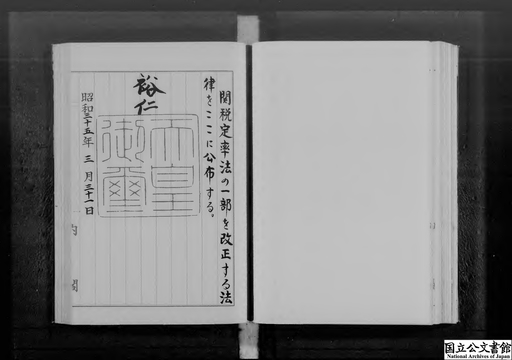 関税定率法の一部を改正する法
律をここに公布する。
裕仁
天皇
御璽
昭和三十五年三月三十一日
内閣
国立公文書館
National Archives of Japan